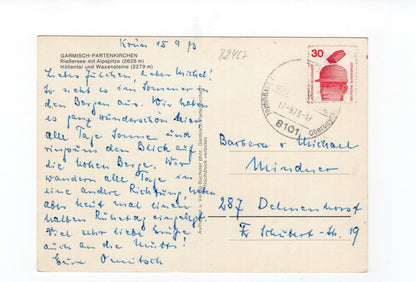 Krün 15.9.73
82467
GARMISCH-PARTENKIRCHEN
Rießersee mit Alpspitze (2628 m)
Höllental und Waxensteine (2279 m)
Liebes Julchen, lieber Michel!
So sieht es im Sommer in
den Bergen aus. Wir haben
es ganz wunderschön hier
alle Tage Sonne und
ringsum den Blick auf
die hohen Berge. Wir
wandern alle Tage in
eine andere Richtung haben
aber heut mal einen
halben Ruhetag eingelegt.
Viel sehr liebe Grüße
auch an die Mutti!
Eure
30
DEUTSCHE BUNDESPOST
17.-9.73-17
8101
Barbara u. Michael
Mindner
287 Delmenhorst
Fr. Schubert-Str. 19